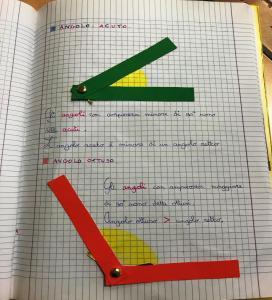 ANGOLO ACUTO
Gli angoli con ampiezza minore di 90° sono
acuti.
L'angolo acuto è minore di un angolo retto
ANGOLO OTTUSO
Gli angoli con ampiezza maggiore
di 90° sono detti ottusi.
L'angolo ottuso > angolo retto.